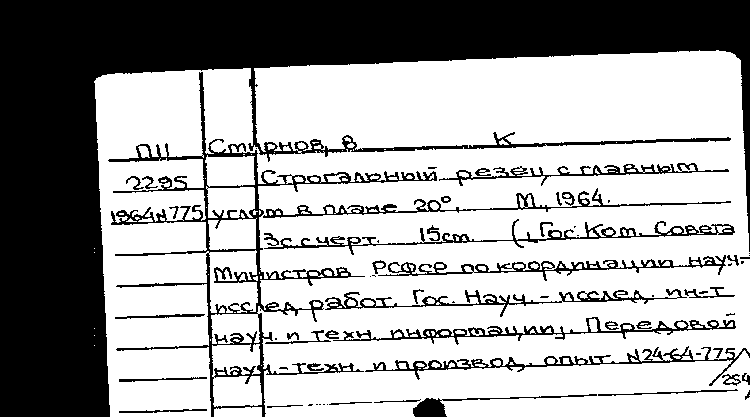 П11 Смирнов, В К
2295 Строгальный резец с главным
1964N775 углом в плане 20°. М., 1964.
3с.с черт. 15cm. (, Гос. Ком. Совета
Министров РСФСР по координации науч.-
исслед. работ. Гос. Науч.-исслед. ин-т
науч. и техн. информации). Передовой
науч.-техн. и производ. опыт. N24-64-775/